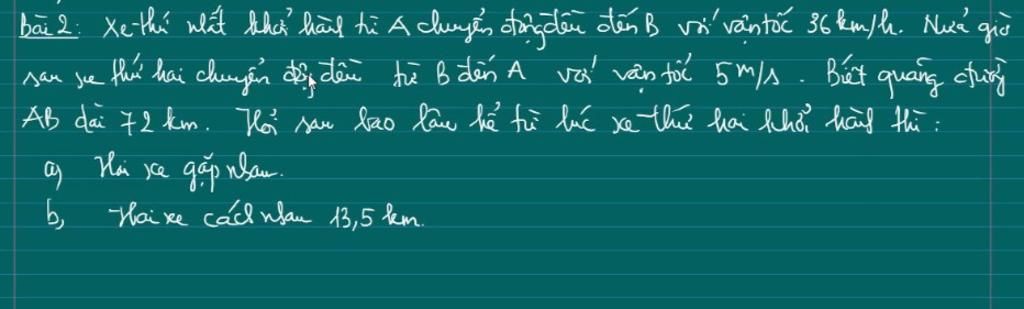 Bài 2: Xe thứ nhất khởi hành từ A chuyển động đều đến B với vận tốc 36 km/h. Nửa giờ
sau xe thứ hai chuyển động đều từ B đến A với vận tốc 5 m/s. Biết quãng đường
AB dài 72 km. Hỏi sau bao lâu kể từ lúc xe thứ hai khởi hành thì:
a, Hai xe gặp nhau.
b, Hai xe cách nhau 13,5 km.